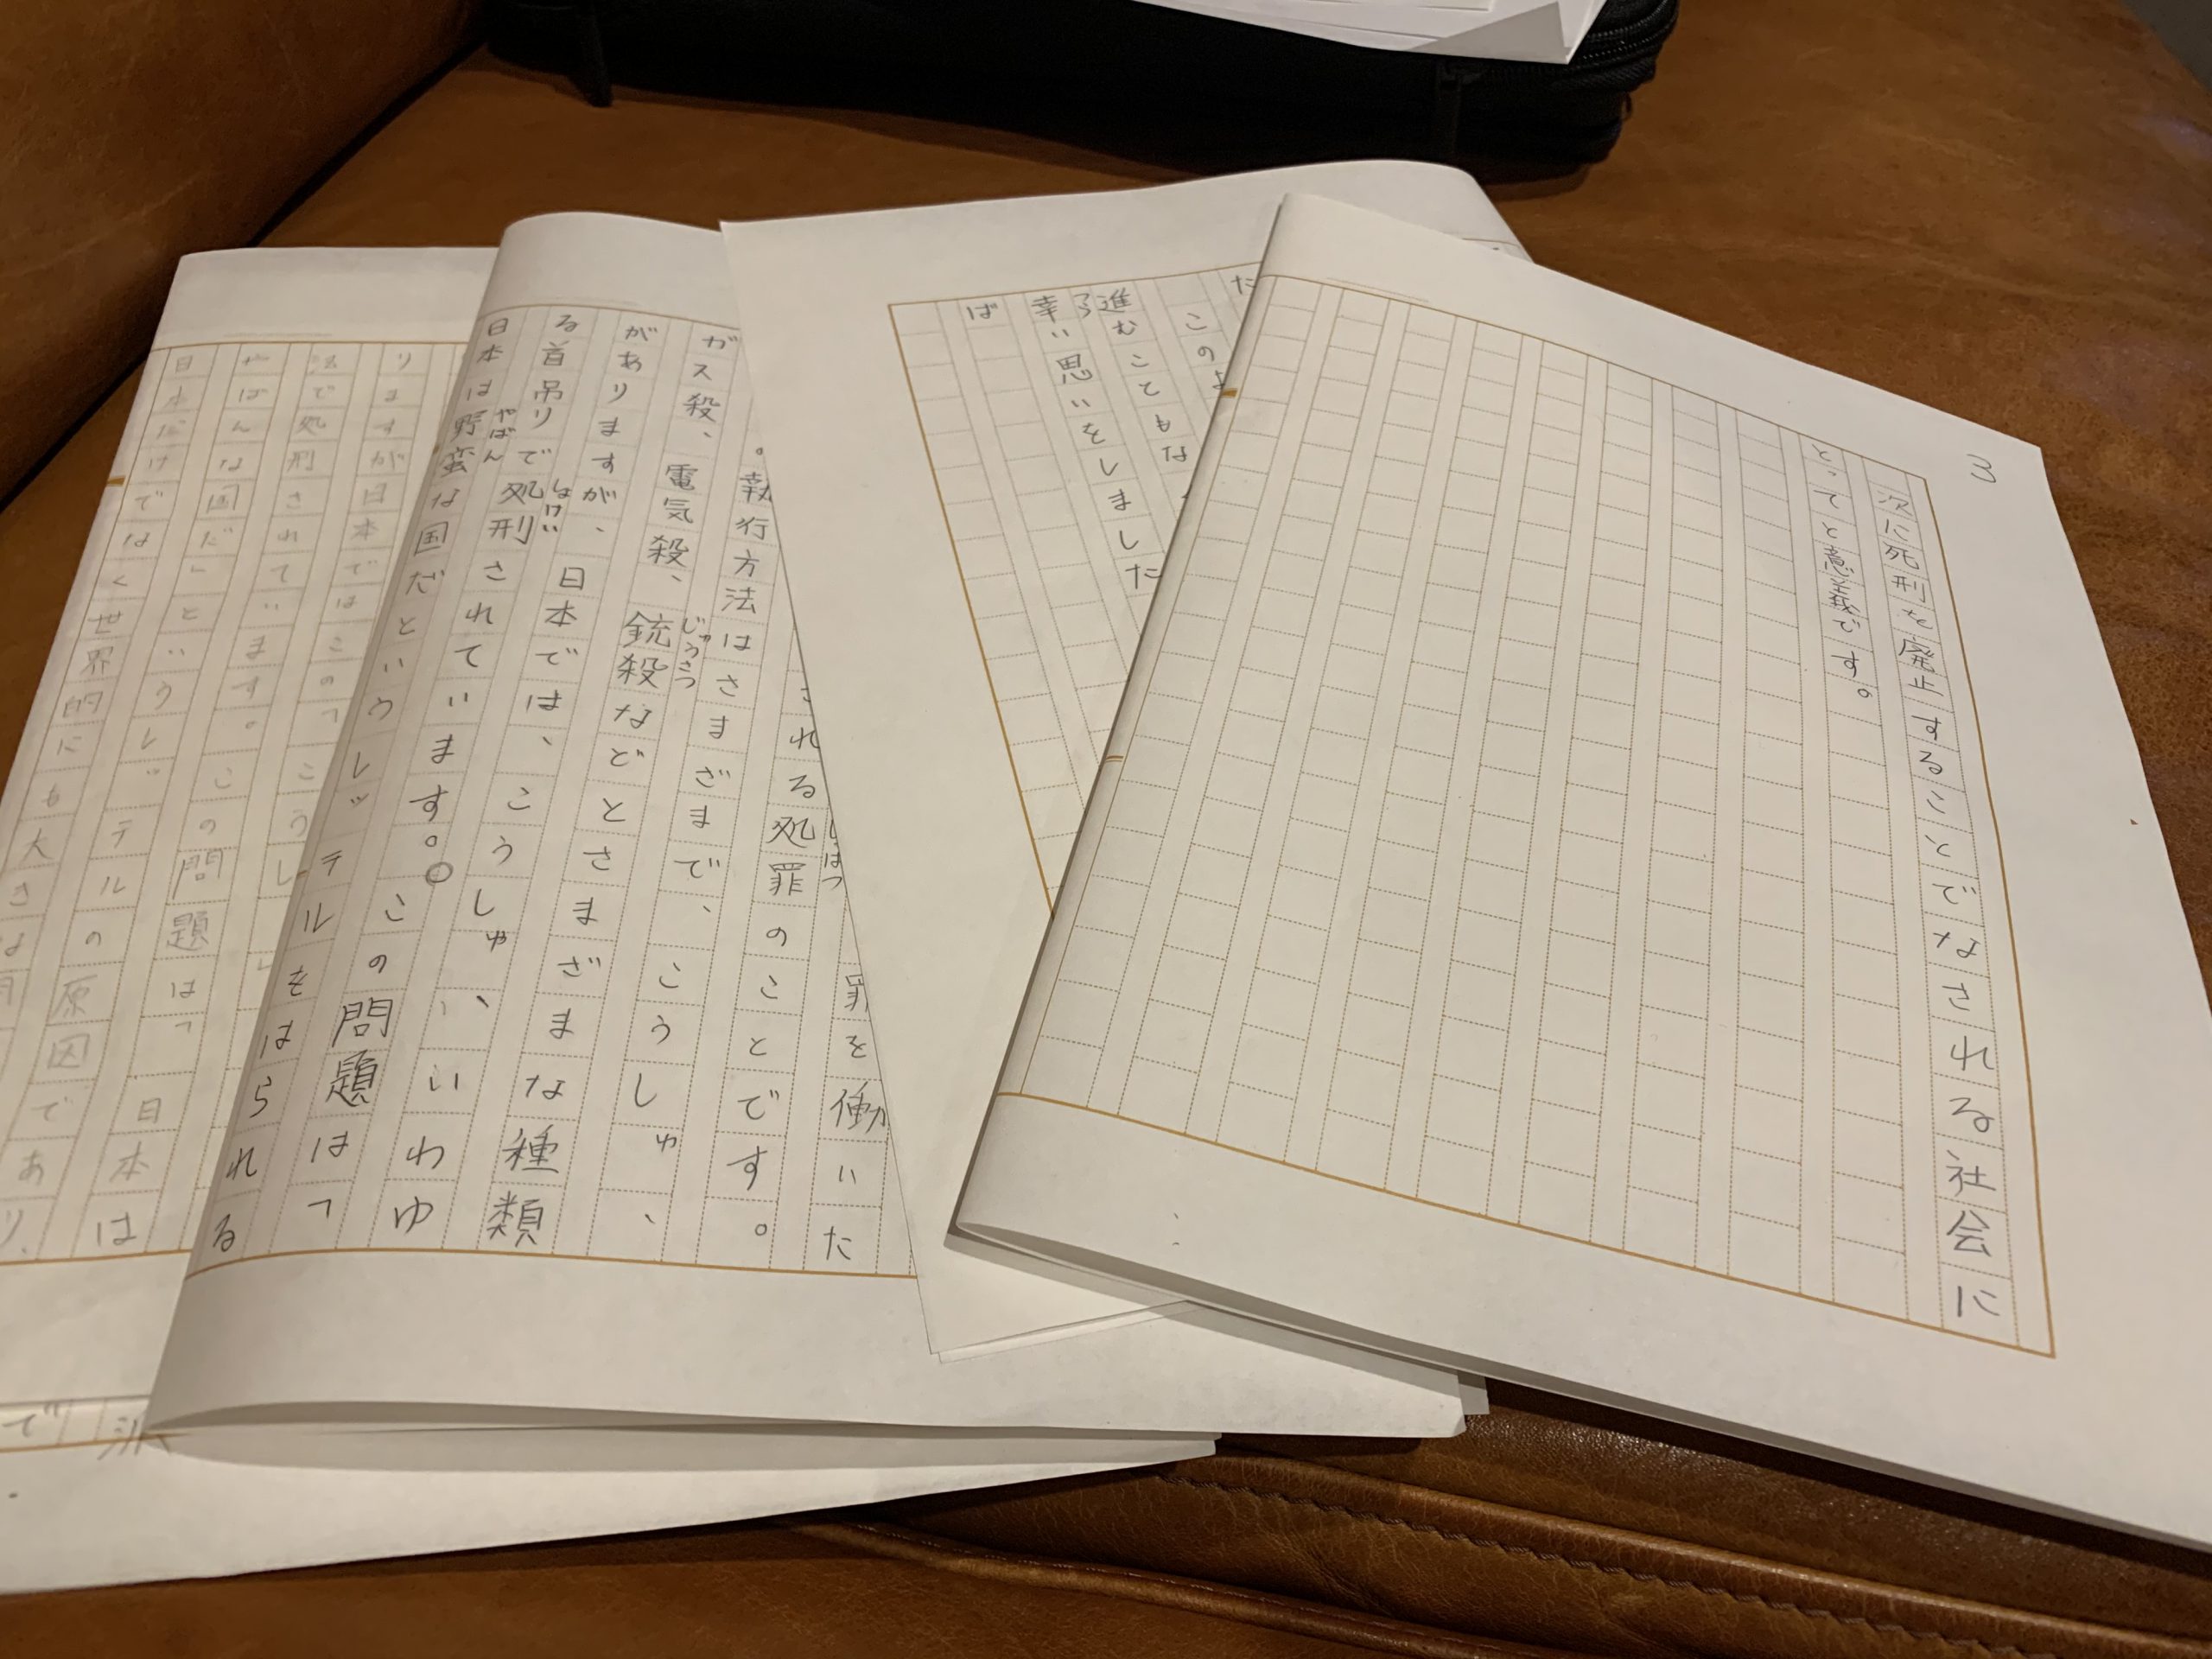 3
次に死刑を廃止することでなされる社会に
とってと意義です。
た
このよ
進むこともな
つら
幸い思いをしました
ば
罪を働いた
れる処罪のことです。
。執行方法はさまざまで、こうしゅ、
じゅうさつ
ガス殺、電気殺、銃殺などとさまざまな種類
がありますが、日本では、こうしゅ、いわゆ
しょけい
る首吊りで処刑されています。この問題は「
やばん
日本は野蛮な国だというレッテルをはられる
りますが日本ではこの「こうし
法で処刑されています。この問題は「日本は
やばんな国だ」というレッテルの原因であり、
日本だけでなく世界的にも大きな
で